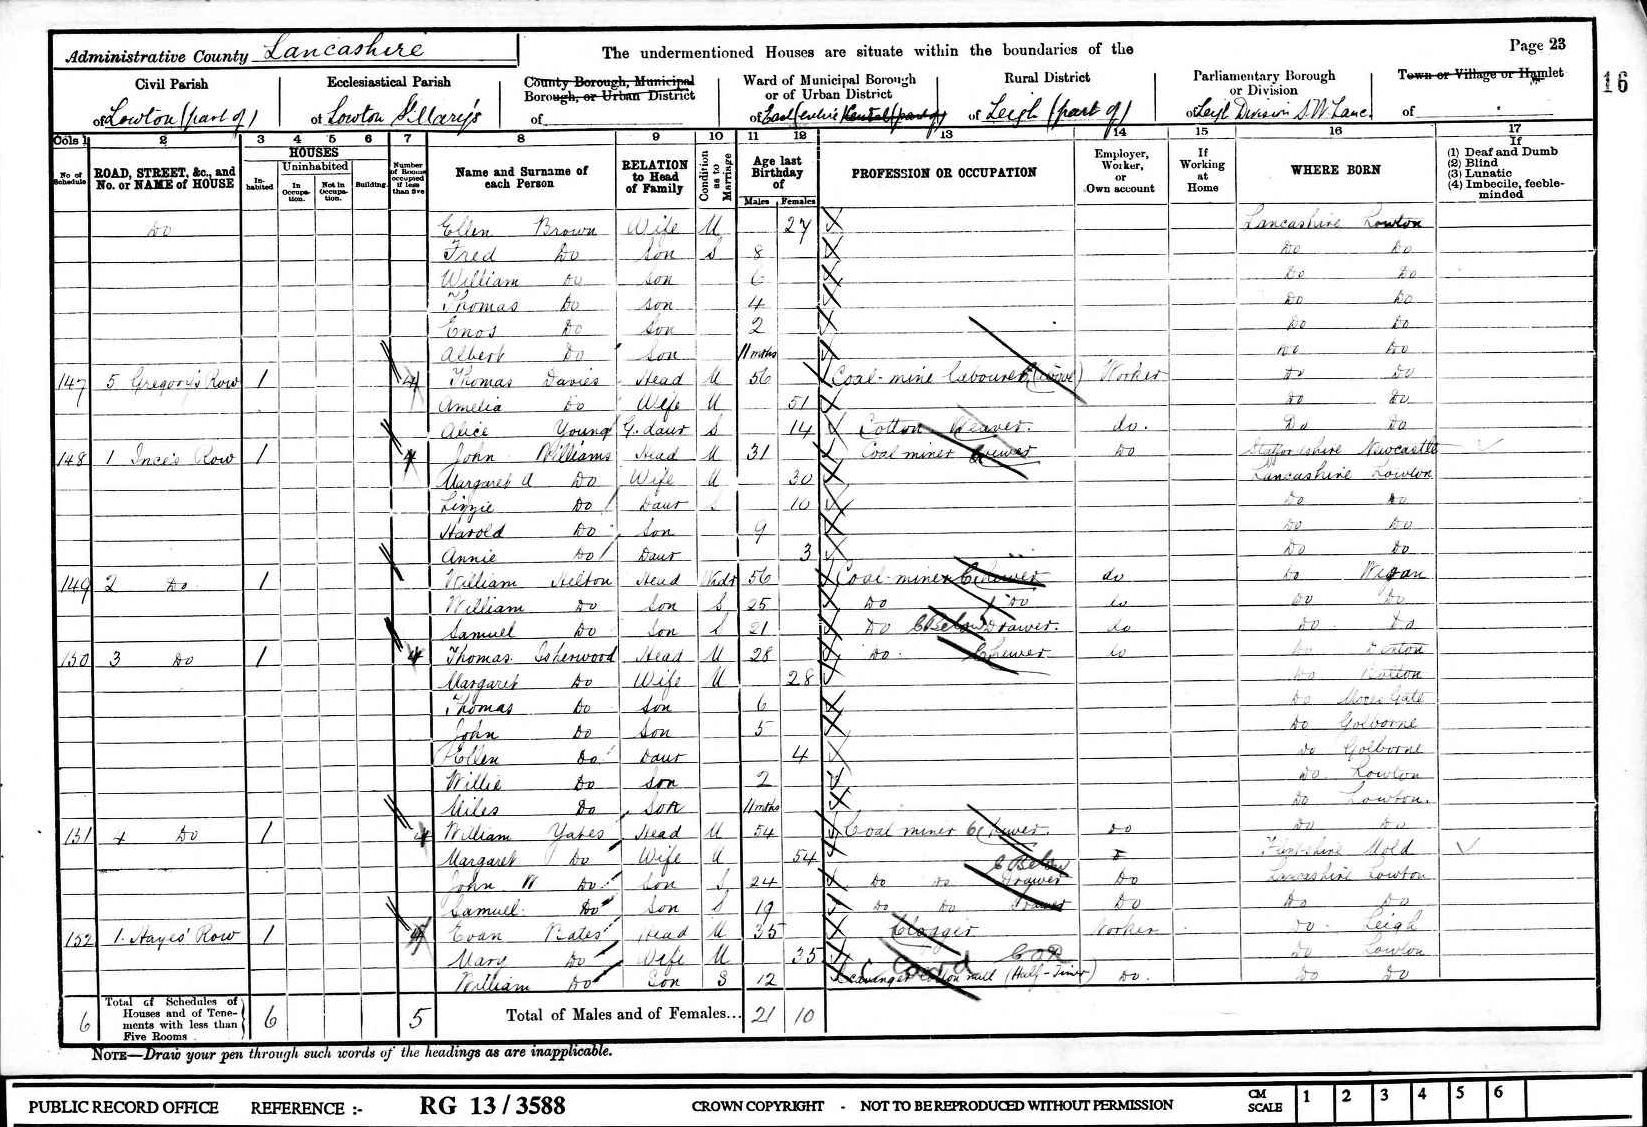 Administrative County Lancashire
The undermentioned Houses are situate within the boundaries of the
Page 23
16
Civil Parish
of Lowton (part of)
Ecclesiastical Parish
of Lowton St Mary's
County Borough, Municipal Borough, or Urban District
of
Ward of Municipal Borough or of Urban District
of East
Rural District
of Leigh (part of)
Parliamentary Borough or Division
of Leigh Division S.W Lanc.
Town or Village or Hamlet
of
Cols 1 2 3 4 5 6 7 8 9 10 11 12 13 14 15 16 17
No. of Schedule
ROAD, STREET, &c., and No. or NAME of HOUSE
HOUSES
In-habited
Uninhabited
In Occupa-tion.
Not in Occupa-tion.
Building.
Number of Rooms occupied if less than five
Name and Surname of each Person
RELATION to Head of Family
Condition as to Marriage
Age last Birthday of
Males Females
PROFESSION OR OCCUPATION
Employer, Worker, or Own account
If Working at Home
WHERE BORN
If
(1) Deaf and Dumb
(2) Blind
(3) Lunatic
(4) Imbecile, feeble-minded
Do Ellen Brown Wife M 27 Lancashire Lowton
Fred Do Son S 8 Do Do
William Do Son 6 Do Do
Thomas Do Son 4 Do Do
Enos Do Son 2 Do Do
Albert Do Son 11 mths Do Do
147 5 Gregory's Row 1 4 Thomas Davies Head M 56 Coal-mine labourer (above) Worker Do Do
Amelia Do Wife M 51 Do Do
Alice Young G. daur S 14 Cotton do. Do Do
148 1 Ince's Row 1 4 John Williams Head M 31 Coal miner hewer Do Staffordshire Newcastle
Margaret A Do Wife M 30 Lancashire Lowton
Lizzie Do Daur 10 Do Do
Harold Do Son 9 Do Do
Annie Do Daur 3 Do Do
149 2 Do 1 William Hilton Head Widr 56 Coal-miner hewer do Do Wigan
William Do Son S 25 Do Do do Do Do
Samuel Do Son S 21 Do Below Drawer. do Do Do
150 3 Do 1 4 Thomas Isherwood Head M 28 Do. Hewer do Do
Margaret Do Wife M 28 Do
Thomas Do Son 6 Do
John Do Son 5 Do Golborne
Ellen Do Daur 4 Do Golborne
Willie Do Son 2 Do Lowton
Miles Do Son 11 mths Do Lowton.
151 4 Do 1 4 William Yates Head M 54 Coal miner hewer. Do Do Do
Margaret Do Wife M 54 Below Flintshire Mold
John W Do Son S 24 Do Do Drawer Do Lancashire Lowton
Samuel Do Son S 19 Do Do Drawer Do Do Do
152 1 Hayes' Row 1 4 Evan Bates Head M 35 Clogger Worker Do Leigh
Mary Do Wife M 35 Do Lowton
William Do Son S 12 Scavenger cotton mill (Half-Timer) Do. Do Do
6 Total of Schedules of Houses and of Tene-ments with less than Five Rooms 6 5 Total of Males and of Females... 21 10
NOTE—Draw your pen through such words of the headings as are inapplicable.
PUBLIC RECORD OFFICE REFERENCE :- RG 13 / 3588 CROWN COPYRIGHT - NOT TO BE REPRODUCED WITHOUT PERMISSION CM SCALE 1 2 3 4 5 6